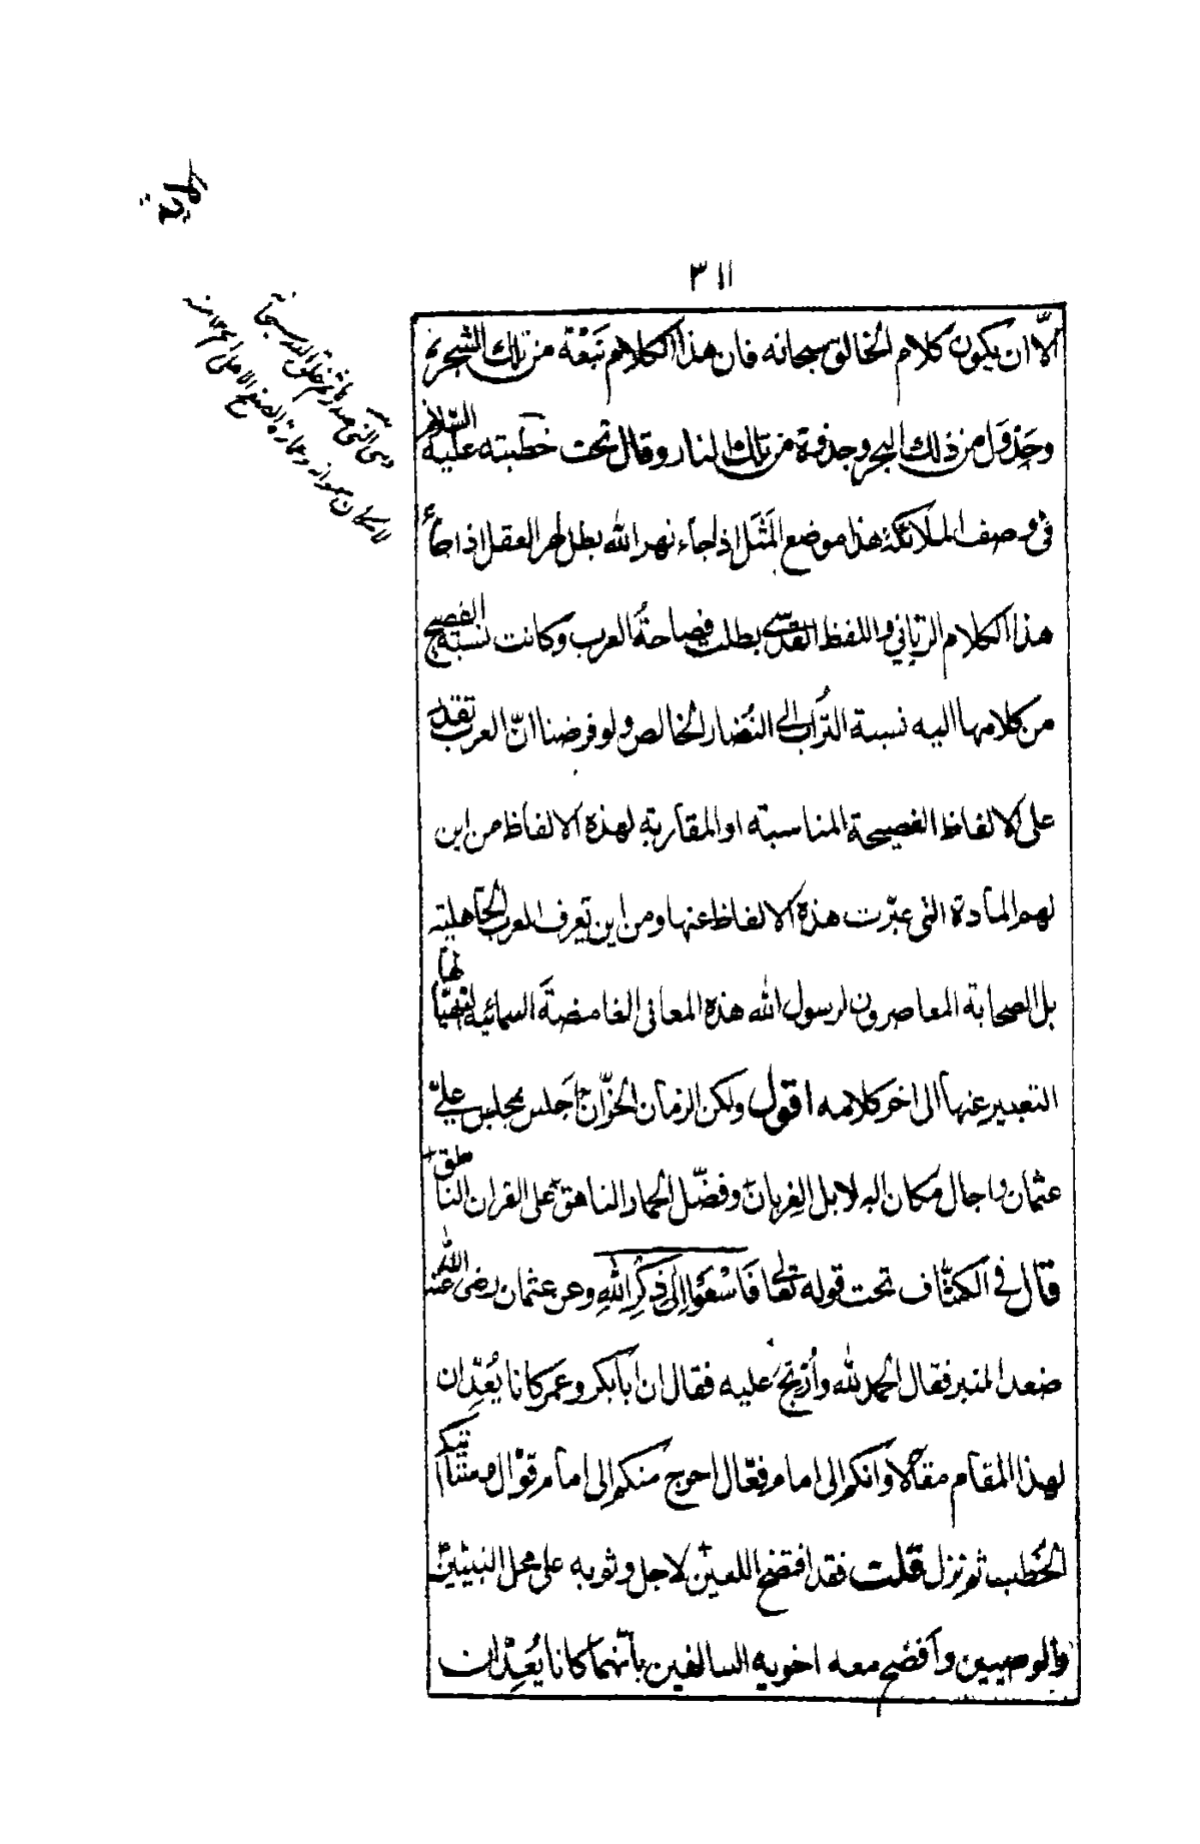 ٣١١
الّا ان يكون كلام الخالق سبحانه فان هذا الكلام نَبْعَة من تلك الشجرة
وجَدْوَل من ذلك البحر وجذوة من تلك النار وقال تحت خطبته عليه السّلام
في وصف الملائكة هذا موضع المَثَل اذا جاء نهر الله بطل نهر العقل اذا جاء
هذا الكلام الربّاني واللفظ القدسي بطلت فصاحةُ العرب وكانت نسبة الفصيح
من كلامها اليه نسبة التُّراب الى النُضار الخالص ولو فرضنا انّ العرب تقدر
على الالفاظ الفصيحة المناسبة او المقاربة لهذه الالفاظ من اين
لهم المادة التي عبّرت هذه الالفاظ عنها ومن اين تعرف العرب الجاهلية
بل الصحابة المعاصرون لرسول الله هذه المعانى الغامضةَ السمائية لتهيّأ لها
التعبير عنها الى اخر كلامه اقول ولكن الزمان الخوّان اجلس مجلس عليّ
عثمان واجال مكان البلابل الغربان وفضّل الحمار الناهق على القران الناطق
قال في الكشّاف تحت قوله تعالى فَاسْعَوْا اِلىٰ ذِكْرِ اللهِ وعن عثمان رضى الله عنه
صعد المنبر فقال الحمد لله وأُرتج عليه فقال ان ابا بكر وعمر كانا يُعِدّان
لهذا المقام مقالا وانكم الى امام فعّال احوج منكم الى امام قوّال وستاتيكم
الخُطب ثم نزل قلت فقد افتضح اللعين لاجل وثوبه على محل النبيّين
والوصيين وافضح معه اخويه السالفين بانّهما كانا يُعِدّان